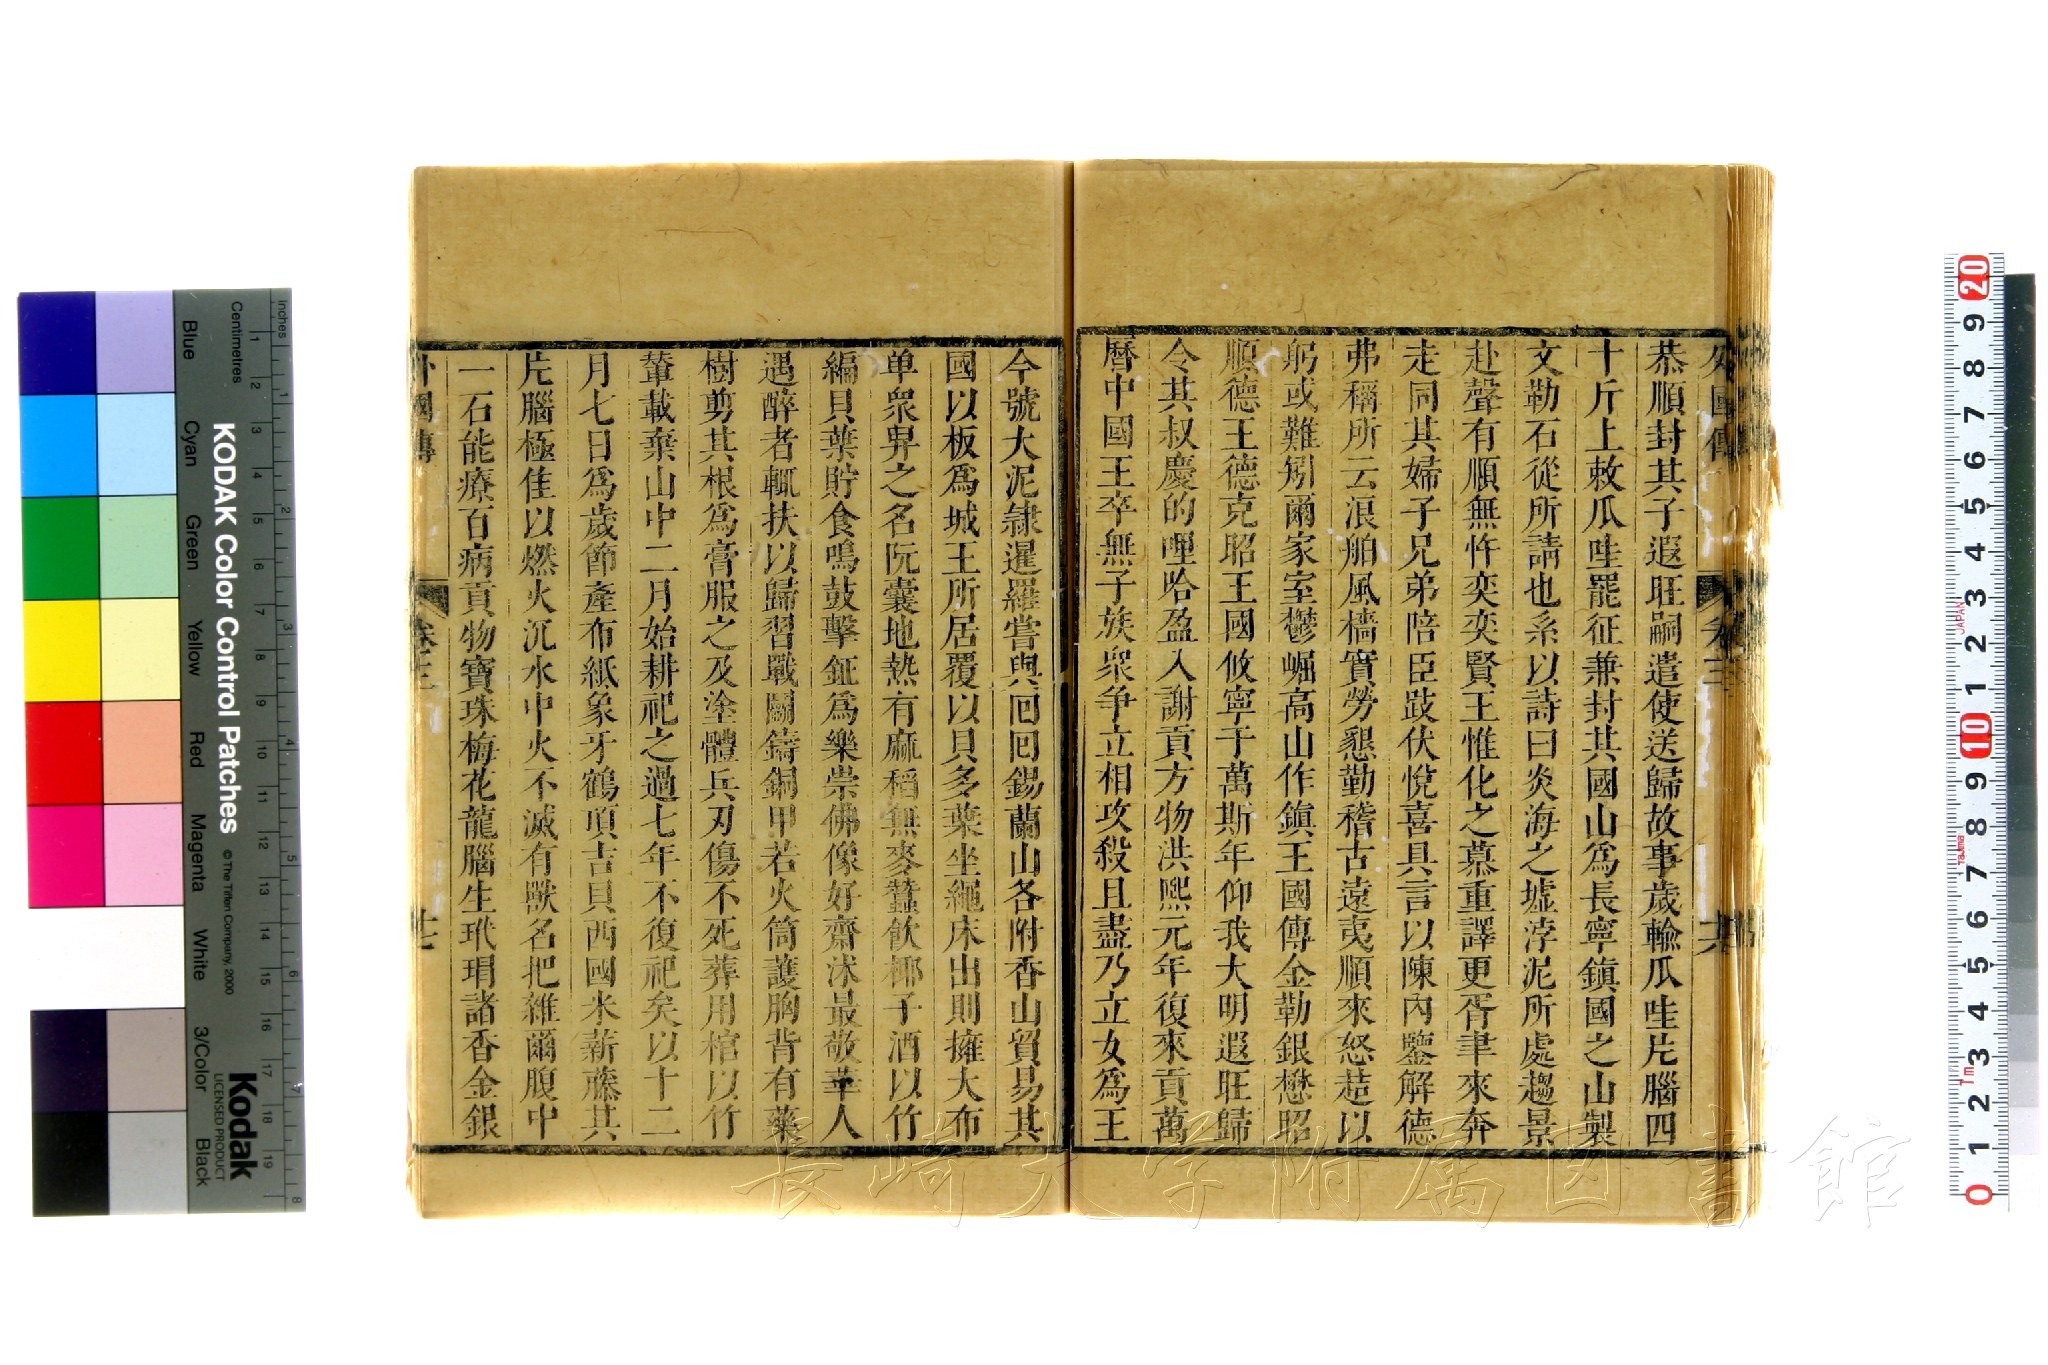 外國傳 卷三 六
恭順封其子遐旺嗣遣使送歸故事歲輸瓜哇片腦四
十斤上敕瓜哇罷征兼封其國山為長寧鎮國之山製
文勒石從所請也系以詩曰炎海之墟浡泥所處趨景
赴聲有順無忤奕奕賢王惟化之慕重譯更胥聿來奔
走同其婦子兄弟陪臣跂伏悅喜具言以陳內鑒解德
弗稱所云浪舶風檣實勞懇勤稽古遠夷順來怒趌以
躬或難矧爾家室鬱崛高山作鎮王國傳金勒銀懋昭
順德王德克昭王國攸寧于萬斯年仰我大明遐旺歸
令其叔慶的哩哈盈入謝貢方物洪熙元年復來貢萬
曆中國王卒無子族衆爭立相攻殺且盡乃立女為王
今號大泥隷暹羅嘗與回回錫蘭山各附香山貿易其
國以板為城王所居覆以貝多葉坐繩床出則擁大布
单衆舁之名阮囊地熱有麻稻無麥蠶飲椰子酒以竹
編貝葉貯食鳴鼓擊鉦為樂崇佛像好齋沐最敬華人
遇醉者輒扶以歸習戰鬭鑄銅甲若火筒護胸背有藥
樹剪其根為膏服之及塗體兵刃傷不死葬用棺以竹
輦載棄山中二月始耕祀之過七年不復祀矣以十二
月七日為歲節產布紙象牙鶴頂吉貝西國米薪蕂其
片腦極佳以燃火沉水中火不滅有獸名把雖爾腹中
一石能療百病貢物寶珠梅花龍腦生玳瑁諸香金銀
外國傳 卷三 七
長崎大学附属図書館
KODAK Color Control Patches
© The Tiffen Company, 2000
Kodak
LICENSED PRODUCT
Centimetres
inches
Blue Cyan Green Yellow Red Magenta White 3/Color Black
JAPAN